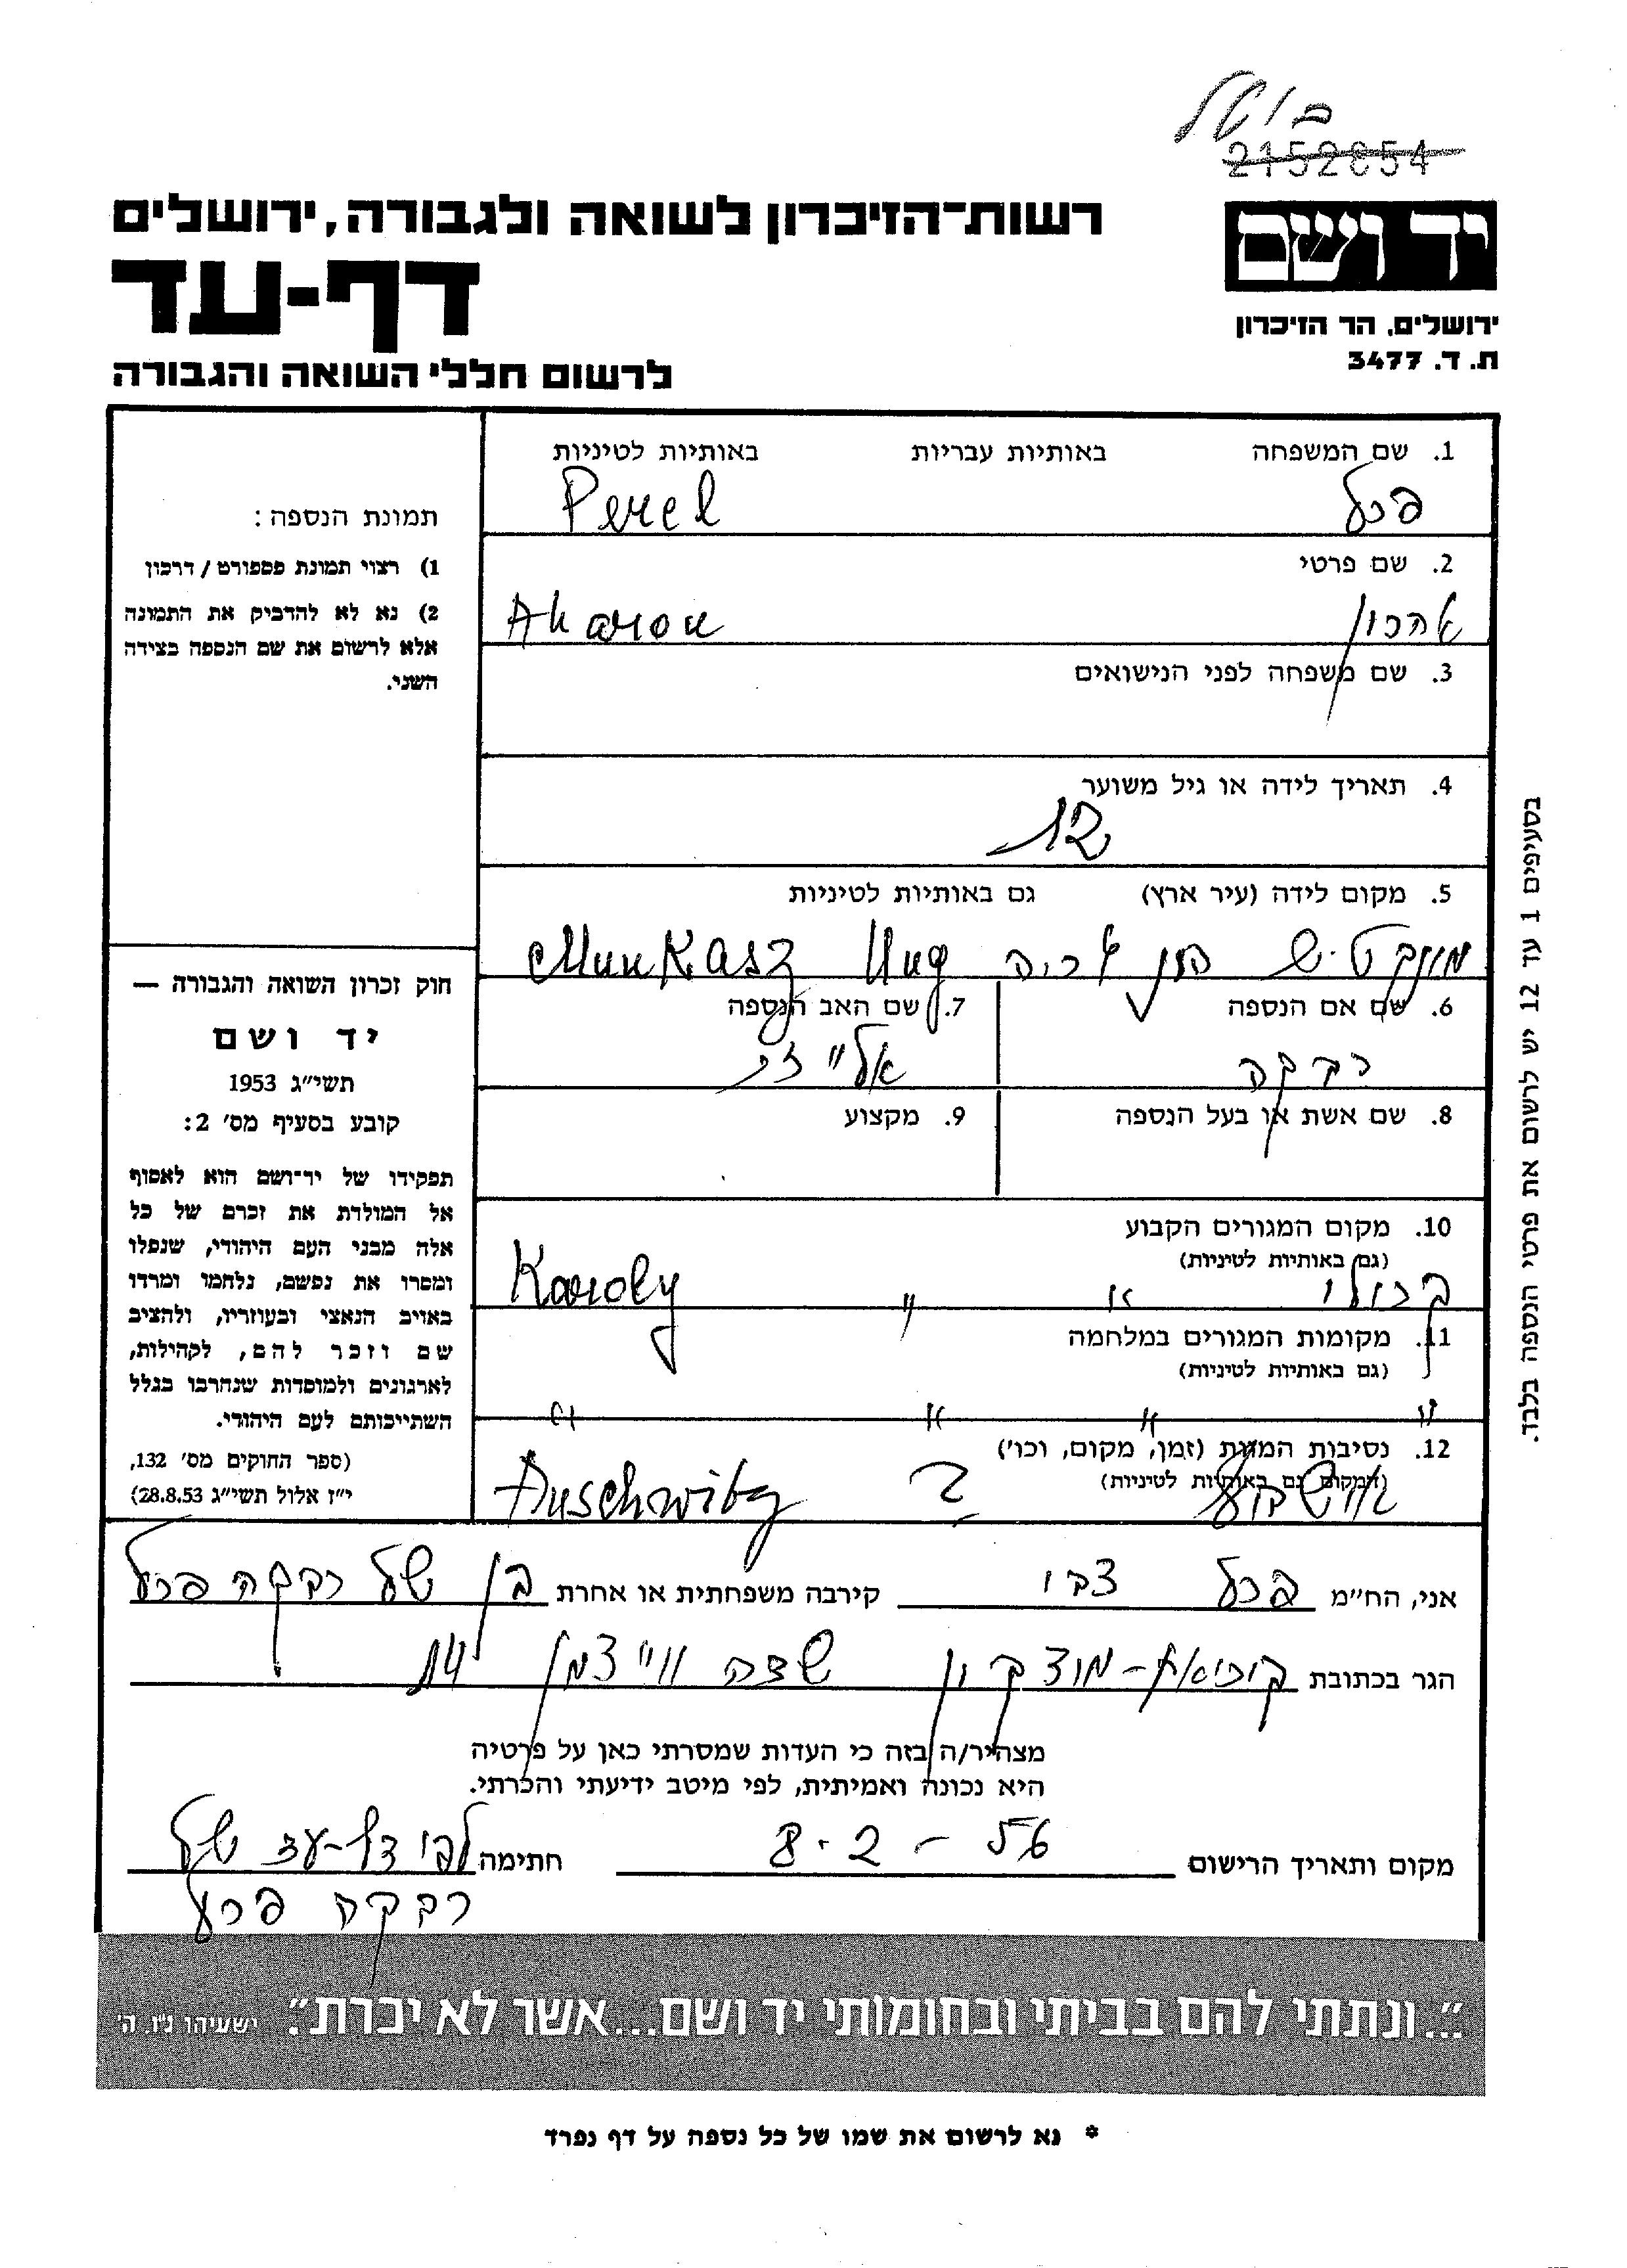 בוטל
2152854
רשות־הזיכרון לשואה ולגבורה, ירושלים
יד ושם
דף-עד
ירושלים, הר הזיכרון
ת. ד. 3477
לרשום חללי השואה והגבורה
1. שם המשפחה באותיות עבריות באותיות לטיניות
פרל Perel
2. שם פרטי
אהרון Aharon
3. שם משפחה לפני הנישואים
4. תאריך לידה או גיל משוער
12
5. מקום לידה (עיר ארץ) גם באותיות לטיניות
Munkasz Hug
6. שם אם הנספה
רבקה
7. שם האב הנספה
8. שם אשת או בעל הנספה
9. מקצוע
10. מקום המגורים הקבוע
(גם באותיות לטיניות)
קרולי " " Karoly
11. מקומות המגורים במלחמה
(גם באותיות לטיניות)
" " " "
12. נסיבות המות (זמן, מקום, וכו')
(המקום גם באותיות לטיניות)
Auschwitz
תמונת הנספה:
1) רצוי תמונת פספורט / דרכון
2) נא לא להדביק את התמונה
אלא לרשום את שם הנספה בצידה
השני.
חוק זכרון השואה והגבורה —
יד ושם
תשי"ג 1953
קובע בסעיף מס' 2:
תפקידו של יד־ושם הוא לאסוף
אל המולדת את זכרם של כל
אלה מבני העם היהודי, שנפלו
ומסרו את נפשם, נלחמו ומרדו
באויב הנאצי ובעוזריו, ולהציב
שם וזכר להם, לקהילות,
לארגונים ולמוסדות שנחרבו בגלל
השתייכותם לעם היהודי.
(ספר החוקים מס' 132,
י"ז אלול תשי"ג 28.8.53)
בסעיפים 1 עד 12 יש לרשום את פרטי הנספה בלבד.
אני, הח"מ פרל צבי קירבה משפחתית או אחרת בן של רבקה פרל
הגר בכתובת קרית-מוצקין שדה וויצמן 14
מצהיר/ה בזה כי העדות שמסרתי כאן על פרטיה
היא נכונה ואמיתית, לפי מיטב ידיעתי והכרתי.
מקום ותאריך הרישום 8.2-56 חתימה לפי דף-עד של
רבקה פרל
"...ונתתי להם בביתי ובחומותי יד ושם...אשר לא יכרת". ישעיהו נ"ו, ה'
* נא לרשום את שמו של כל נספה על דף נפרד